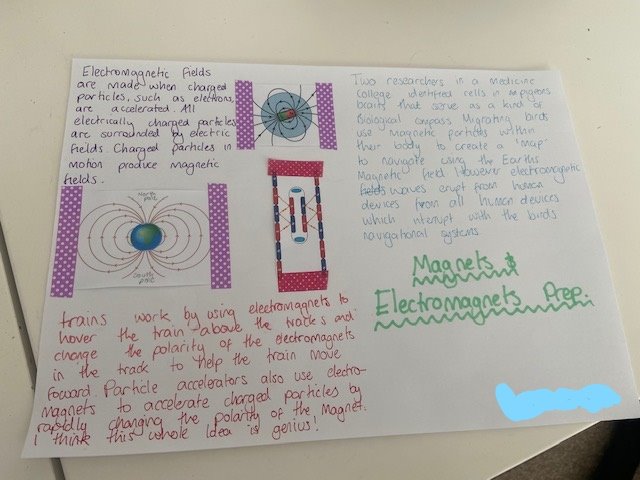 Electromagnetic fields
are made when charged
particles, such as electrons,
are accelerated. All
electrically charged particles
are surrounded by electric
fields. Charged particles in
motion produce magnetic
fields.
North
pole
South
pole
trains work by using electromagnets to
hover the train above the tracks and
change the polarity of the electromagnets
in the track to help the train move
forward. Particle accelerators also use electro-
magnets to accelerate charged particles by
rapidly changing the polarity of the Magnet.
I think this whole Idea is genius!
Two researchers in a medicine
College identified cells in pigeons
brains that serve as a kind of
Biological compass Migrating birds
use magnetic particles within
their body to create a 'map'
to navigate using the Earths
Magnetic field However electromagnetic
fields waves erupt from human
devices from all human devices
which interupt with the birds
navigational systems.
Magnets &
Electromagnets Prep.